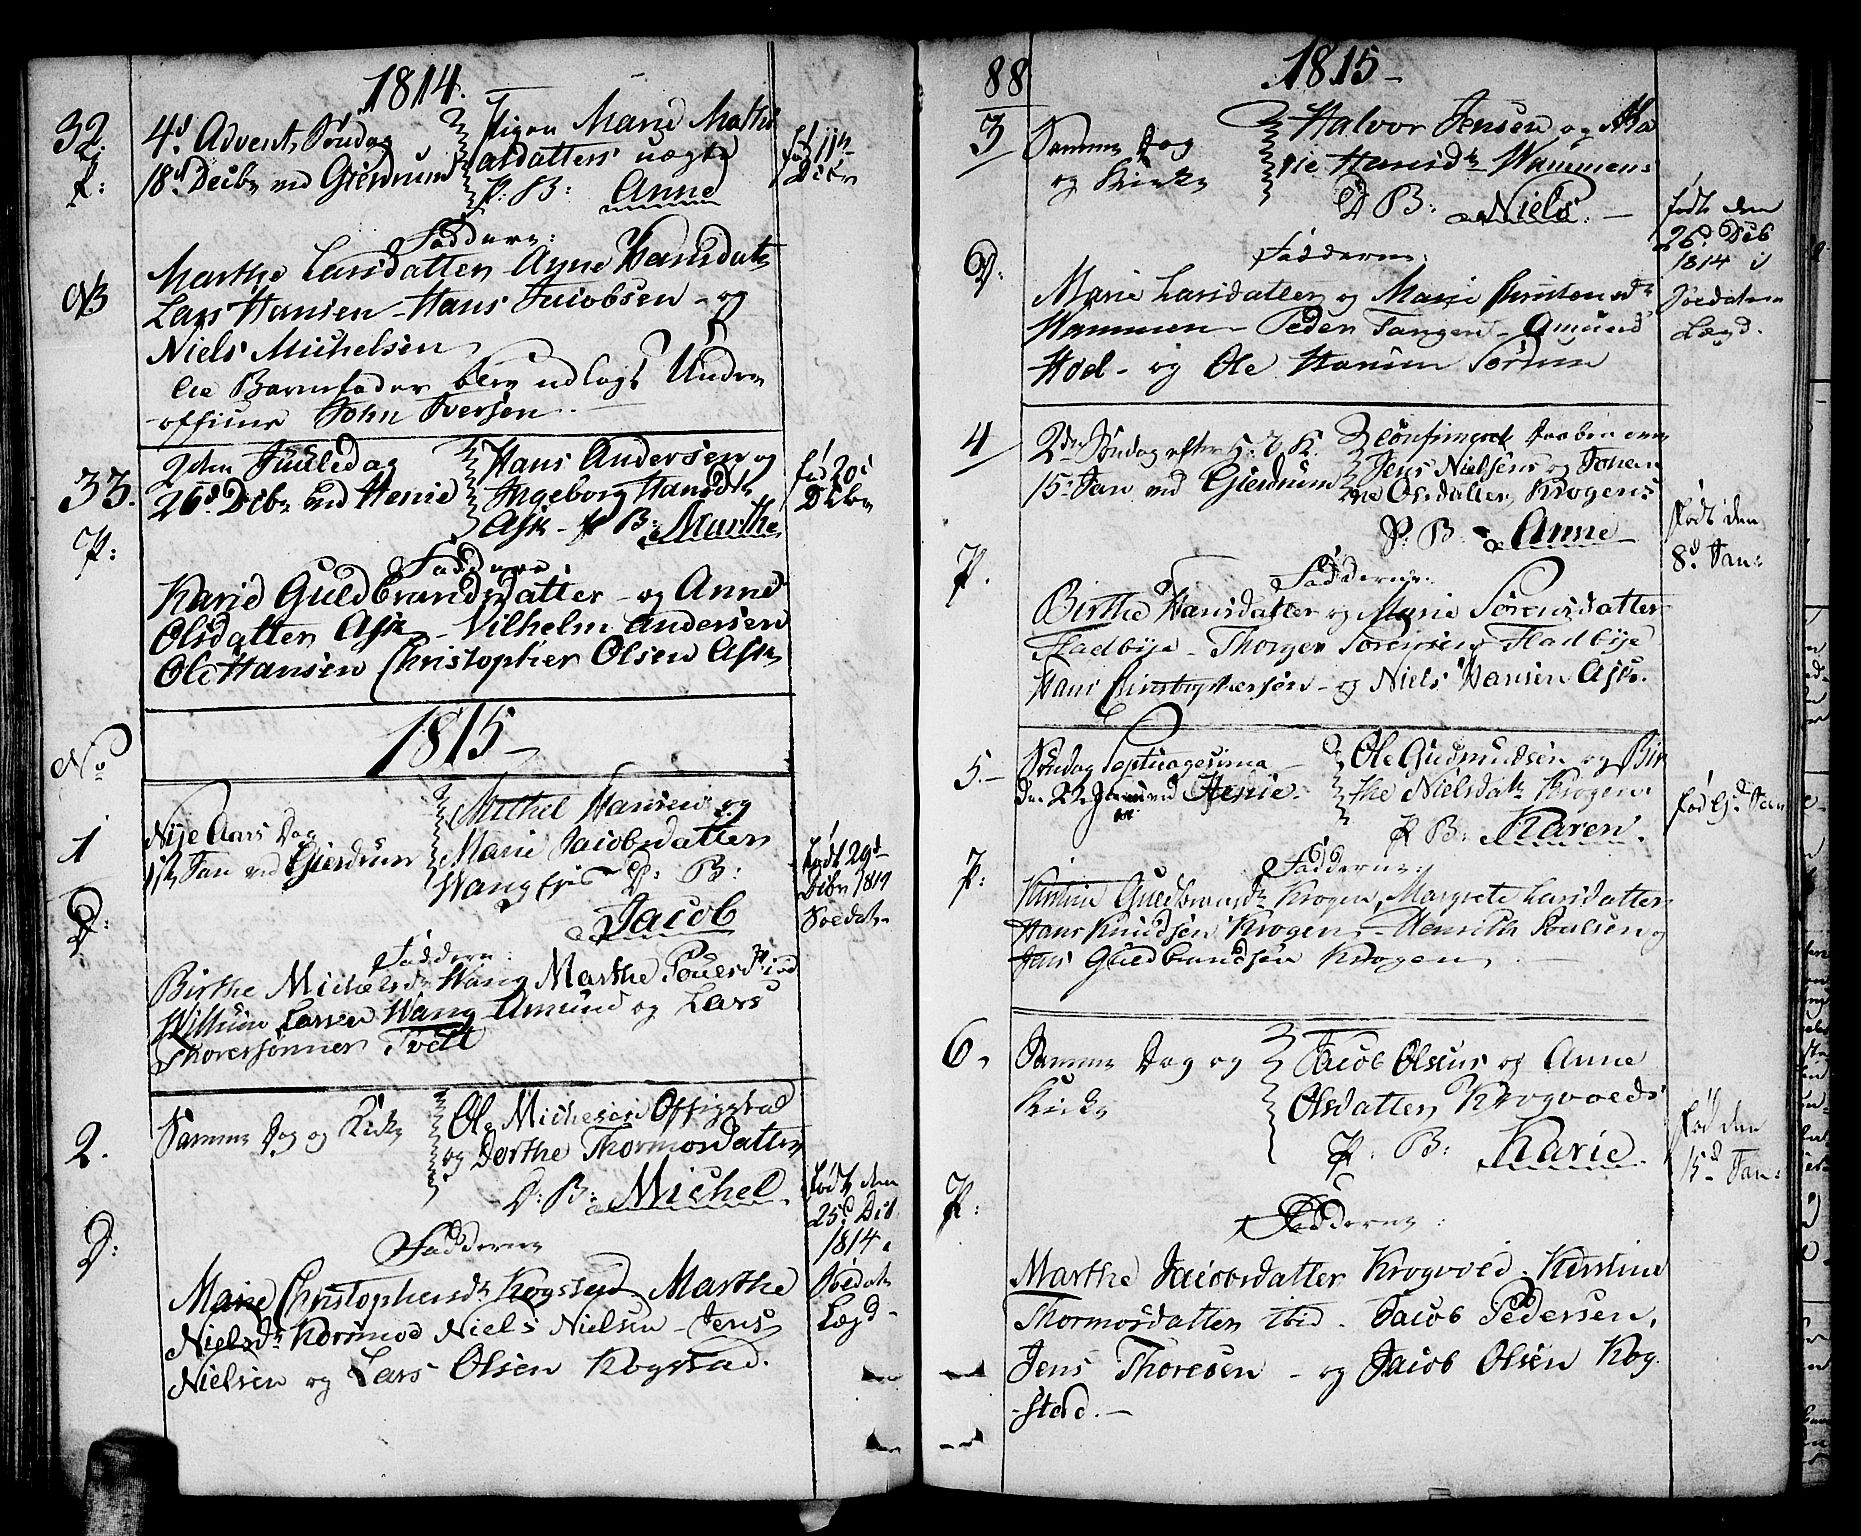 1814.
32.
P:
4d Advent, Søndag
18d Decbr ved Gierdrum
Pigen Marie Mathi
asdatters uægte
P. B: Anne
fød 11te
Decbr
Fadderne:
NB
Marthe Larsdatter Anne Hansdatr
Lars Hansen - Hans Jacobsen - og
Niels Michelsen
Barnefader blev udlagt Under
officeer John Iversen.
33.
P:
2den Juuledag
26d Decbr ved Henie
Hans Andersen og
Ingeborg Hansdtr
Ask - P B: Marthe
fød 20
Decbr
Faddere:
Karie Guldbrandsdatter - og Anne
Olsdatter Ask - Vilhelm Andersen
Ole Hansen Christopher Olsen Ask
1815
No
1
D:
Nije Aars Dag
1ste Jan ved Gierdrum
Michel Hansen og
Marie Jacobsdatter
Wang D: B:
Jacob
født 29d
Decbr 1814
Soldatr
Faddere:
Birthe Michelsdr Wang Marthe
Larsen Wang Amund og Lars
Thoresønner Tveit
2.
D:
Samme Dag og Kirke
Ole Michelsen
og Dorthe Thormosdatter
D: B: Michel
født den
25d Decb.
1814 i
Soldatr
Lægd -
Fadderne
Marie Christophersdr Kogstad Marthe
Nielsdr Korsmoe Niels Nielsen - Jens
Nielsen og Lars Olsen Kogstad.
88
1815 -
3
D:
Samme Dag
og Kirke
Halvor Jensen og Ma
rie Hansdr Wammens
D B: Niels. -
født den
26d Decb
1814 i
Soldater
Lægd.
Fadderne:
Marie Larsdatter og Marie
Wammen - Peder Tangen - Amund
Hoel - og Ole Hansen Sørum
4
P.
2den Søndag efter H. 3 K.
15. Jan ved Gierdrum
Jens Nielsens og Johan
ne Olsdatter Krogens
P: B: Anne
født den
8d Jan:
Fadderne:
Birthe Hansdatter og Marie Sørensdatter
Fladbÿe - Thorger Sørensen Fladbÿe
Hans Christophersen - og Niels Hansen Ask.
5. -
P:
Søndag Septuagesima
den 22 Januar ved Henie.
Ole Gudmundsen og Bir
the Nielsdatr Krogen
P B: Karen.
Fadderne:
Kirstine Guldbrandsdr Krogen, Margrete Larsdatter
Hans Knudsen Krogen - Henrich Poulsen og
Jens Guldbrandsen Krogen
6.
P:
Samme Dag og
Kirke
Jacob Olsens og Anne
Olsdatter Krogvoeds
P: B: Karie
fød den
15d Jan:
Fadderne:
Marthe Jacobsdatter Krogvoed. Kirstine
Thormosdatter ibid. Jacob Pedersen,
Jens Thoresen - og Jacob Olsen Kog
-stad. -